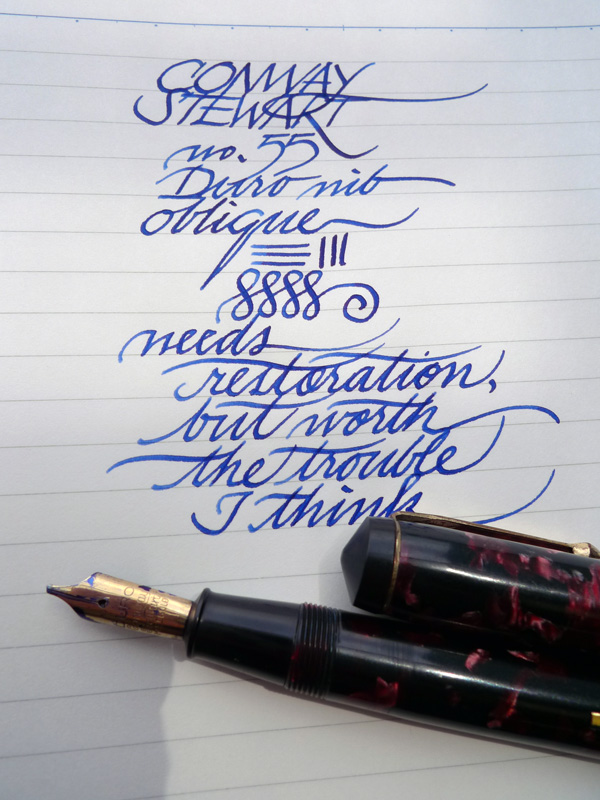 CONWAY
STEWART
no. 55
Duro nib
oblique
needs
restoration,
but worth
the trouble
I think